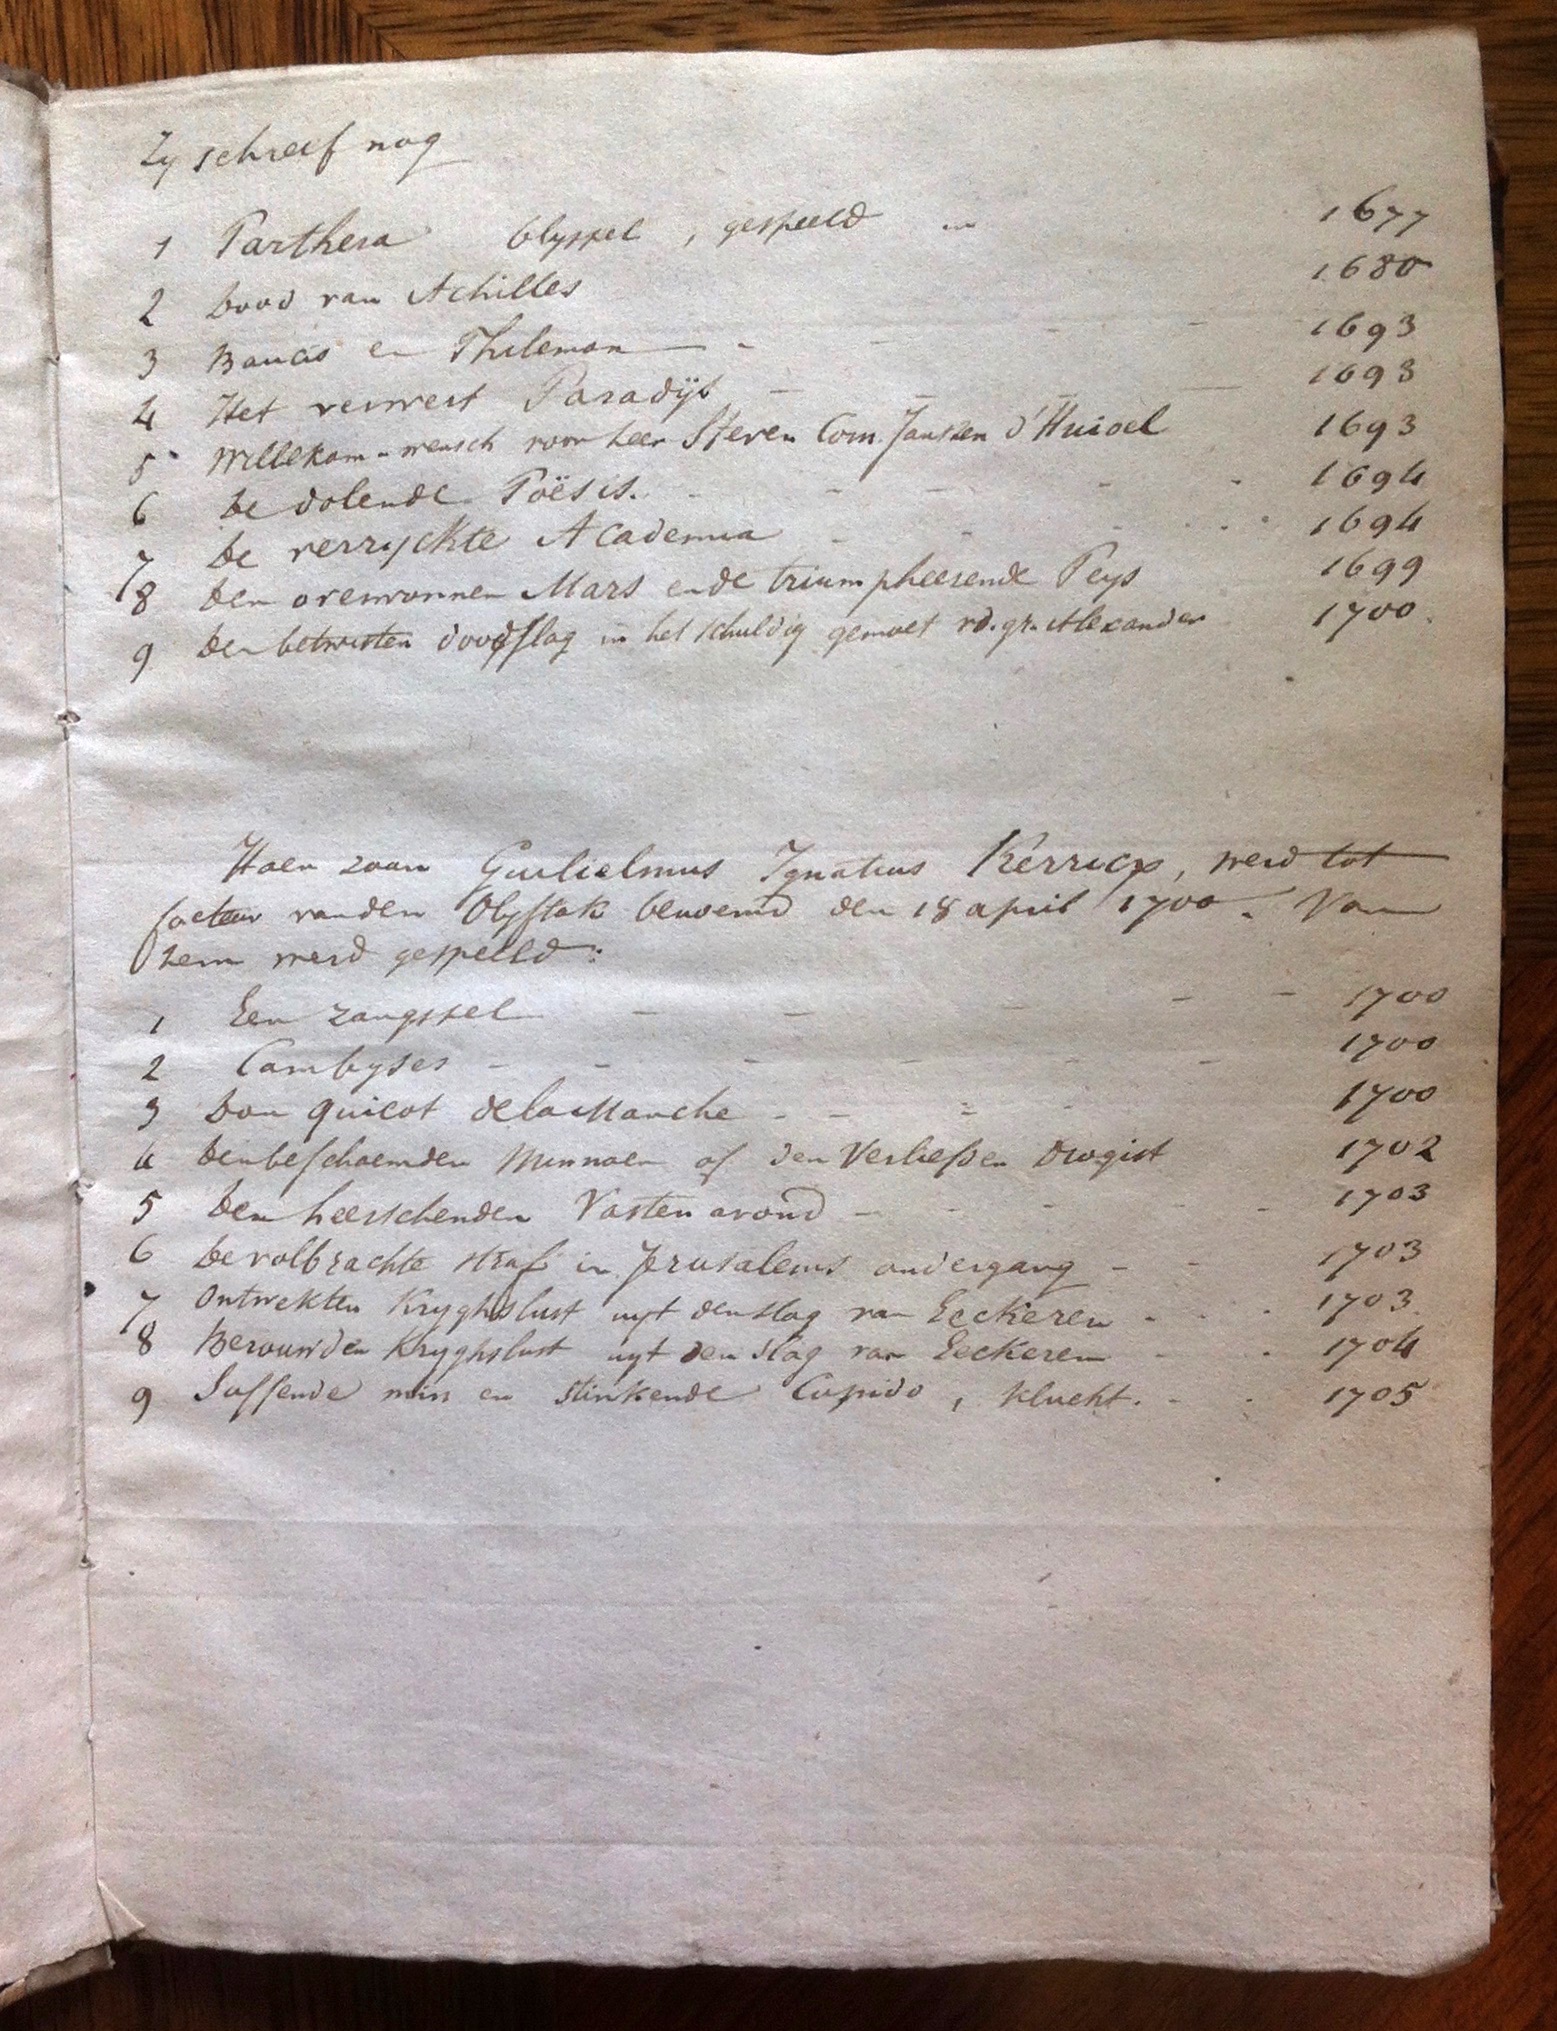 Zy schreef nog
1 Parthera blyspel, gespeeld in 1677
2 Dood van Achilles 1680
3 Baucis en Philemon - - - - 1693
4 Het verwest Paradijs - - - 1693
5 Willekom-wensch voor heer Steven Corn. Janssen d'Huioel 1693
6 De dolende Poësis. - - - - - 1694
7 De verryckte Academia - - - - - 1694
8 Den overwonnen Mars ende triumpheerende Peys 1699
9 Den betwisten doodslag in het schuldig gemoet v.d. gr. Alexander 1700.
Haer zoon Gulielmus Ignatius Kerricx, werd tot
facteur van den Olyftak benoemd den 18 april 1700. Van
hem werd gespeeld:
1 Een zangspel - - - - - 1700
2 Cambyses - - - - - - 1700
3 Don Quicot de la Manche - - - - 1700
4 Den beschaemden Minnaer of den Verliefden Drogist 1702
5 Den heerschenden Vasten avond - - - - - 1703
6 De volbrachte straf in Jerusalems ondergang - - 1703
7 Ontwekten Kryghslust uyt den slag van Eeckeren - - - 1703.
8 Bevourden Kryghslust uyt den slag van Eeckeren - - 1704
9 Suffende min en stinkende Cupido, klucht. - - 1705